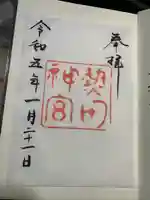 奉拝
神宮
令和五年一月二十一日